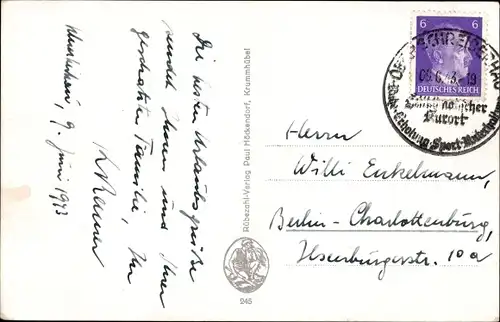 Die besten Urlaubsgrüße
sendet Ihnen und Ihrer
geschätzten Familie, Ihr
9. Juni 1943
Rübezahl-Verlag Paul Höckendorf, Krummhübel
245
6 6
DEUTSCHES REICH
Kurort
Erholung-Sport
Herrn
Willi Enkelmann,
Berlin-Charlottenburg,
Ilsenburgerstr. 10a